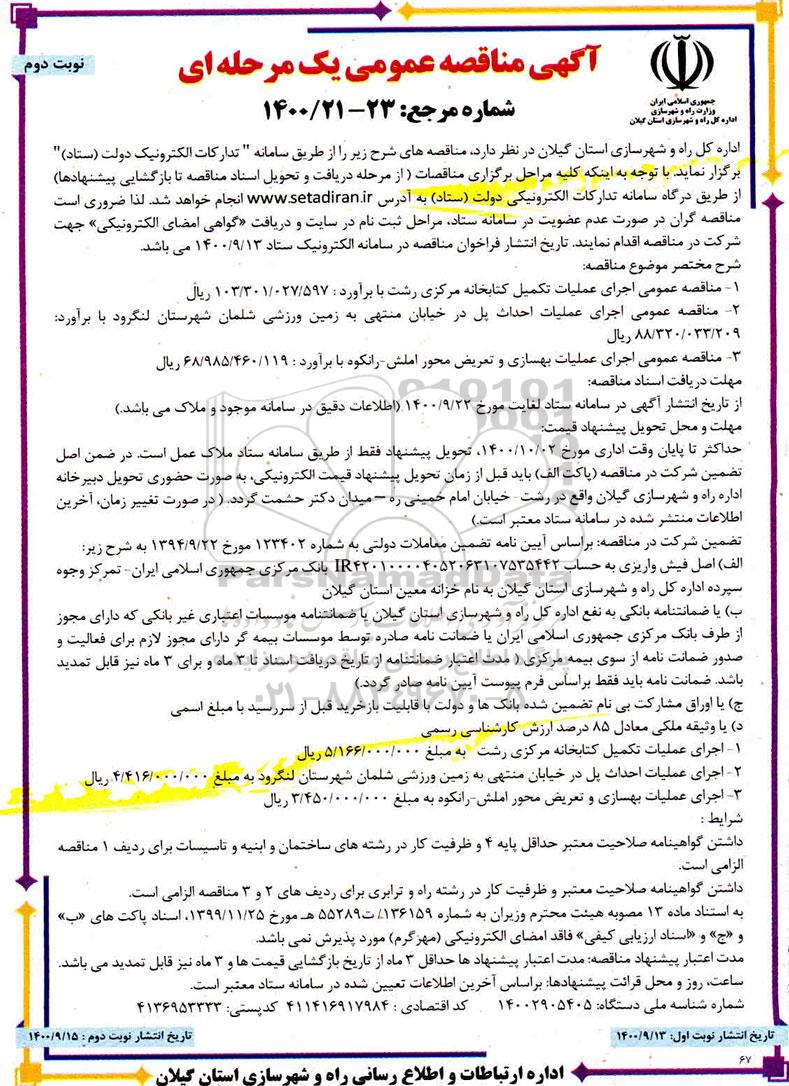 آگهی مناقصه عمومی یک مرحله ای
نوبت دوم
شماره مرجع: ۲۳-۱۴۰۰/۲۱
جمهوری اسلامی ایران
وزارت راه و شهرسازی
اداره کل راه و شهرسازی استان گیلان
اداره کل راه و شهرسازی استان گیلان در نظر دارد، مناقصه های شرح زیر را از طریق سامانه " تدارکات الکترونیک دولت (ستاد)"
برگزار نماید. با توجه به اینکه کلیه مراحل برگزاری مناقصات ( از مرحله دریافت و تحویل اسناد مناقصه تا بازگشایی پیشنهادها)
از طریق درگاه سامانه تدارکات الکترونیکی دولت (ستاد) به آدرس www.setadiran.ir انجام خواهد شد. لذا ضروری است
مناقصه گران در صورت عدم عضویت در سامانه ستاد، مراحل ثبت نام در سایت و دریافت «گواهی امضای الکترونیکی» جهت
شرکت در مناقصه اقدام نمایند. تاریخ انتشار فراخوان مناقصه در سامانه الکترونیک ستاد ۱۴۰۰/۹/۱۳ می باشد.
شرح مختصر موضوع مناقصه:
۱- مناقصه عمومی اجرای عملیات تکمیل کتابخانه مرکزی رشت با برآورد : ۱۰۳/۳۰۱/۰۲۷/۵۹۷ ریال
۲- مناقصه عمومی اجرای عملیات احداث پل در خیابان منتهی به زمین ورزشی شلمان شهرستان لنگرود با برآورد:
۸۸/۳۲۰/۰۳۳/۲۰۹ ریال
۳- مناقصه عمومی اجرای عملیات بهسازی و تعریض محور املش-رانکوه با برآورد : ۶۸/۹۸۵/۴۶۰/۱۱۹ ریال
مهلت دریافت اسناد مناقصه:
از تاریخ انتشار آگهی در سامانه ستاد لغایت مورخ ۱۴۰۰/۹/۲۲ (اطلاعات دقیق در سامانه موجود و ملاک می باشد.)
مهلت و محل تحویل پیشنهاد قیمت:
حداکثر تا پایان وقت اداری مورخ ۱۴۰۰/۱۰/۰۲، تحویل پیشنهاد فقط از طریق سامانه ستاد ملاک عمل است. در ضمن اصل
تضمین شرکت در مناقصه (پاکت الف) باید قبل از زمان تحویل پیشنهاد قیمت الکترونیکی، به صورت حضوری تحویل دبیرخانه
اداره راه و شهرسازی گیلان واقع در رشت- خیابان امام خمینی ره – میدان دکتر حشمت گردد. ( در صورت تغییر زمان، آخرین
اطلاعات منتشر شده در سامانه ستاد معتبر است.)
تضمین شرکت در مناقصه: براساس آیین نامه تضمین معاملات دولتی به شماره ۱۲۳۴۰۲ مورخ ۱۳۹۴/۹/۲۲ به شرح زیر:
الف) اصل فیش واریزی به حساب IR۴۲۰۱۰۰۰۰۴۰۵۲۰۶۳۱۰۷۵۳۵۴۴۲ بانک مرکزی جمهوری اسلامی ایران- تمرکز وجوه
سپرده اداره کل راه و شهرسازی استان گیلان به نام خزانه معین استان گیلان
ب) یا ضمانتنامه بانکی به نفع اداره کل راه و شهرسازی استان گیلان یا ضمانتنامه موسسات اعتباری غیر بانکی که دارای مجوز
از طرف بانک مرکزی جمهوری اسلامی ایران یا ضمانت نامه صادره توسط موسسات بیمه گر دارای مجوز لازم برای فعالیت و
صدور ضمانت نامه از سوی بیمه مرکزی ( مدت اعتبار ضمانتنامه از تاریخ دریافت اسناد تا ۳ ماه و برای ۳ ماه نیز قابل تمدید
باشد. ضمانت نامه باید فقط براساس فرم پیوست آیین نامه صادر گردد.)
ج) یا اوراق مشارکت بی نام تضمین شده بانک ها و دولت با قابلیت بازخرید قبل از سررسید با مبلغ اسمی
د) یا وثیقه ملکی معادل ۸۵ درصد ارزش کارشناسی رسمی
۱- اجرای عملیات تکمیل کتابخانه مرکزی رشت به مبلغ ۵/۱۶۶/۰۰۰/۰۰۰ ریال
۲- اجرای عملیات احداث پل در خیابان منتهی به زمین ورزشی شلمان شهرستان لنگرود به مبلغ ۴/۴۱۶/۰۰۰/۰۰۰ ریال
۳- اجرای عملیات بهسازی و تعریض محور املش-رانکوه به مبلغ ۳/۴۵۰/۰۰۰/۰۰۰ ریال
شرایط :
داشتن گواهینامه صلاحیت معتبر حداقل پایه ۴ و ظرفیت کار در رشته های ساختمان و ابنیه و تاسیسات برای ردیف ۱ مناقصه
الزامی است.
داشتن گواهینامه صلاحیت معتبر و ظرفیت کار در رشته راه و ترابری برای ردیف های ۲ و ۳ مناقصه الزامی است.
به استناد ماده ۱۳ مصوبه هیئت محترم وزیران به شماره ۱۳۶۱۵۹/ت۵۵۲۸۹ هـ مورخ ۱۳۹۹/۱۱/۲۵، اسناد پاکت های «ب»
و «ج» و «اسناد ارزیابی کیفی» فاقد امضای الکترونیکی (مهرگرم) مورد پذیرش نمی باشد.
مدت اعتبار پیشنهاد مناقصه: مدت اعتبار پیشنهاد ها حداقل ۳ ماه از تاریخ بازگشایی قیمت ها و ۳ ماه نیز قابل تمدید می باشد.
ساعت، روز و محل قرائت پیشنهادها: براساس آخرین اطلاعات تعیین شده در سامانه ستاد معتبر است.
شماره شناسه ملی دستگاه: ۱۴۰۰۲۹۰۵۴۰۵ کد اقتصادی : ۴۱۱۴۱۶۹۱۷۹۸۴ کدپستی: ۴۱۳۶۹۵۳۳۳۳
تاریخ انتشار نوبت اول: ۱۴۰۰/۹/۱۳
تاریخ انتشار نوبت دوم : ۱۴۰۰/۹/۱۵
۶۷
اداره ارتباطات و اطلاع رسانی راه و شهرسازی استان گیلان
ParsNamadData
۰۲۱-۸۸۳۴۹۶۷۰-۸